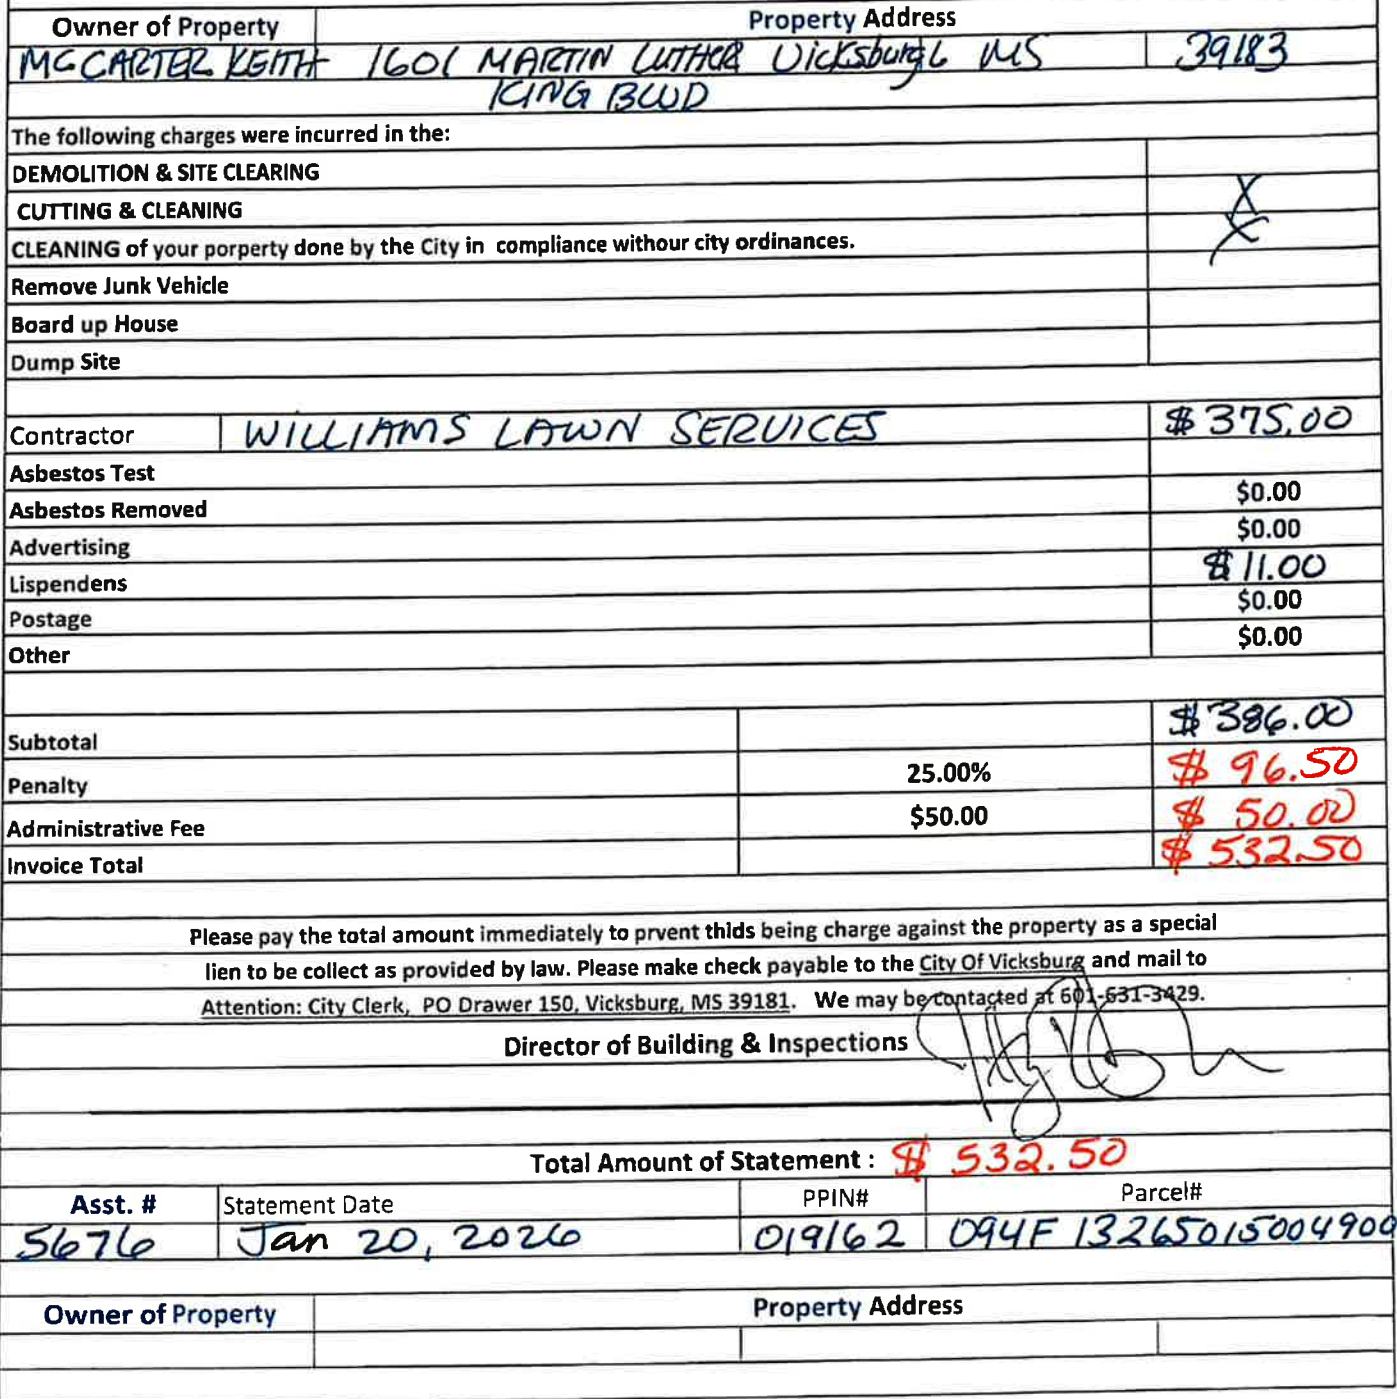 Owner of Property Property Address
MCCARTER KEITH 1601 MARTIN LUTHER Vicksburg MS 39183
KING BLVD
The following charges were incurred in the:
DEMOLITION & SITE CLEARING
CUTTING & CLEANING X
CLEANING of your porperty done by the City in compliance withour city ordinances. X
Remove Junk Vehicle
Board up House
Dump Site
Contractor WILLIAMS LAWN SERVICES $375.00
Asbestos Test
Asbestos Removed $0.00
Advertising $0.00
Lispendens $11.00
Postage $0.00
Other $0.00
Subtotal $386.00
Penalty 25.00% $96.50
Administrative Fee $50.00 $50.00
Invoice Total $532.50
Please pay the total amount immediately to prvent thids being charge against the property as a special
lien to be collect as provided by law. Please make check payable to the City Of Vicksburg and mail to
Attention: City Clerk, PO Drawer 150, Vicksburg, MS 39181. We may be contacted at 601-631-3429.
Director of Building & Inspections
Total Amount of Statement : $532.50
Asst. # Statement Date PPIN# Parcel#
5676 Jan 20, 2026 019162 094F 13265015004900
Owner of Property Property Address